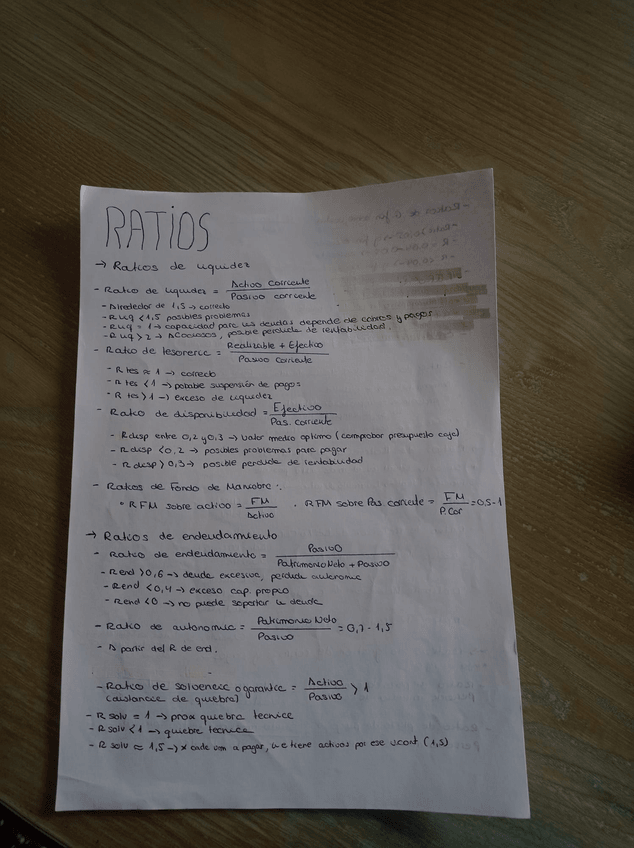 RATIOS
→ Ratios de liquidez
- Ratio de liquidez = Activo corriente / Pasivo corriente
- Alrededor de 1,5 → correcto
- R liq < 1,5 posibles problemas
- R liq = 1 → capacidad para las deudas depende de cobros y pagos
- R liq > 2 → A Cociosos, posible perdida de rentabilidad.
- Ratio de tesoreria = Realizable + Efectivo / Pasivo Corriente
- R tes ≈ 1 → correcto
- R tes < 1 → probable suspensión de pagos
- R tes > 1 → exceso de liquidez
- Ratio de disponibilidad = Efectivo / Pas. corriente
- R disp entre 0,2 y 0,3 → valor medio optimo (comprobar presupuesto caja)
- R disp < 0,2 → posibles problemas para pagar
- R disp > 0,3 → posible perdida de rentabilidad
- Ratios de Fondo de Maniobra:
· R FM sobre activo = FM / Activo . R FM sobre Pas. corriente = FM / P. Cor = 0,5 - 1
→ Ratios de endeudamiento
- Ratio de endeudamiento = Pasivo / Patrimonio Neto + Pasivo
- R end > 0,6 → deuda excesiva, perdida autonomia
- R end < 0,4 → exceso cap. propio
- R end < 0 → no puede soportar la deuda
- Ratio de autonomia = Patrimonio Neto / Pasivo = 0,7 - 1,5
- A partir del R de end.
- Ratio de solvencia o garantia = Activo / Pasivo > 1
(distancia de quiebra)
- R solv = 1 → prox quiebra tecnica
- R solv < 1 → quiebra tecnica
- R solv ≈ 1,5 → x cada um a pagar, tiene activos por ese (1,5)